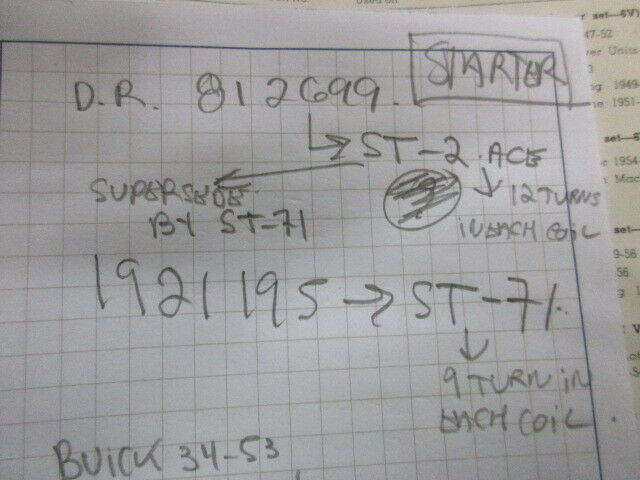 used on
set—6V)
47-52
Units
3
1949-
1951-
STARTER
D.R. 812699.
ST-2. ACE
SUPERSEDE
BY ST-71
12 TURNS
IN EACH COIL
1921195 → ST-71.
9 TURN in
EACH COIL.
BUICK 34-53
1954
Mac
set—
9-56
56